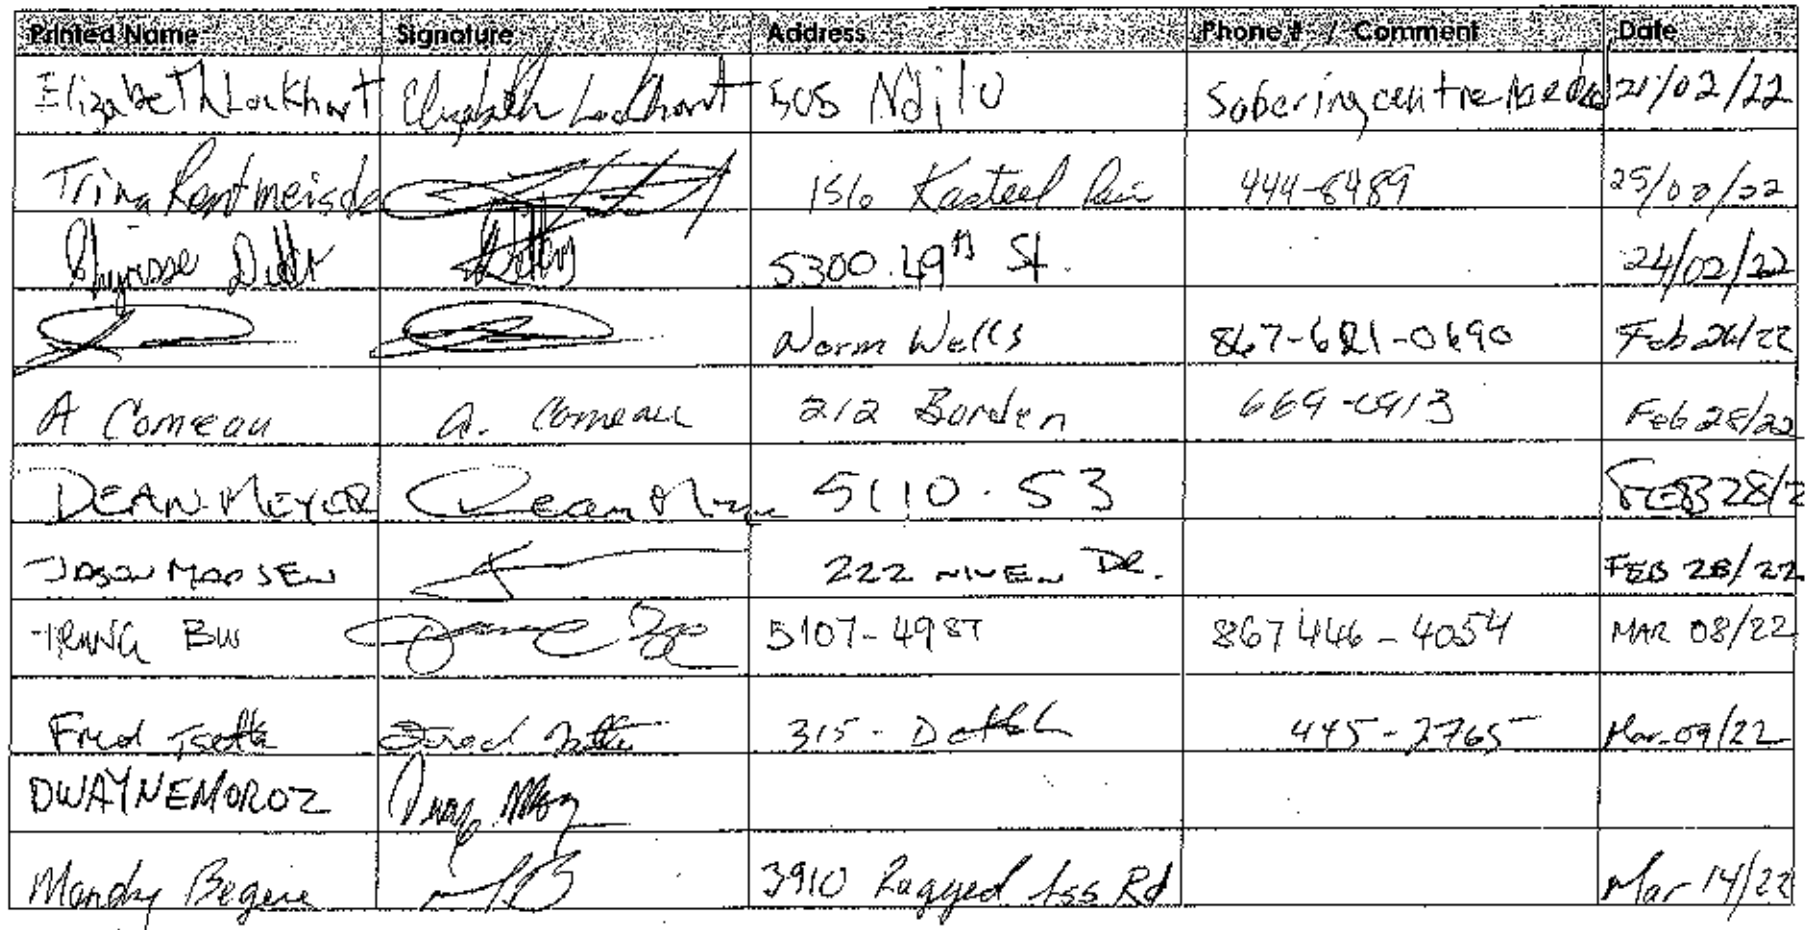 Printed Name Signature Address Phone # / Comment Date
Elizabeth Lockhart Elizabeth Lockhart 505 Ndilo Sobering centre needed 21/02/22
Trina 156 Kasteel 444-8489 25/02/22
5300 49th St. 24/02/22
Norm Wells 867-621-0690 Feb 26/22
A Comeau A. Comeau 212 Borden 669-0913 Feb 28/22
DEAN MEYER Dean 5110 - 53 FEB 28/2
JASON MADSEN 222 NIVEN DR. FEB 28/22
TRUNG BUI 5107-49 ST 867 446-4054 MAR 08/22
Fred Tsetta Fred Tsetta 315 - Dettah 445-2765 Mar-09/22
DWAYNE MOROZ
Mandy Begere 3910 Ragged Ass Rd Mar 14/22